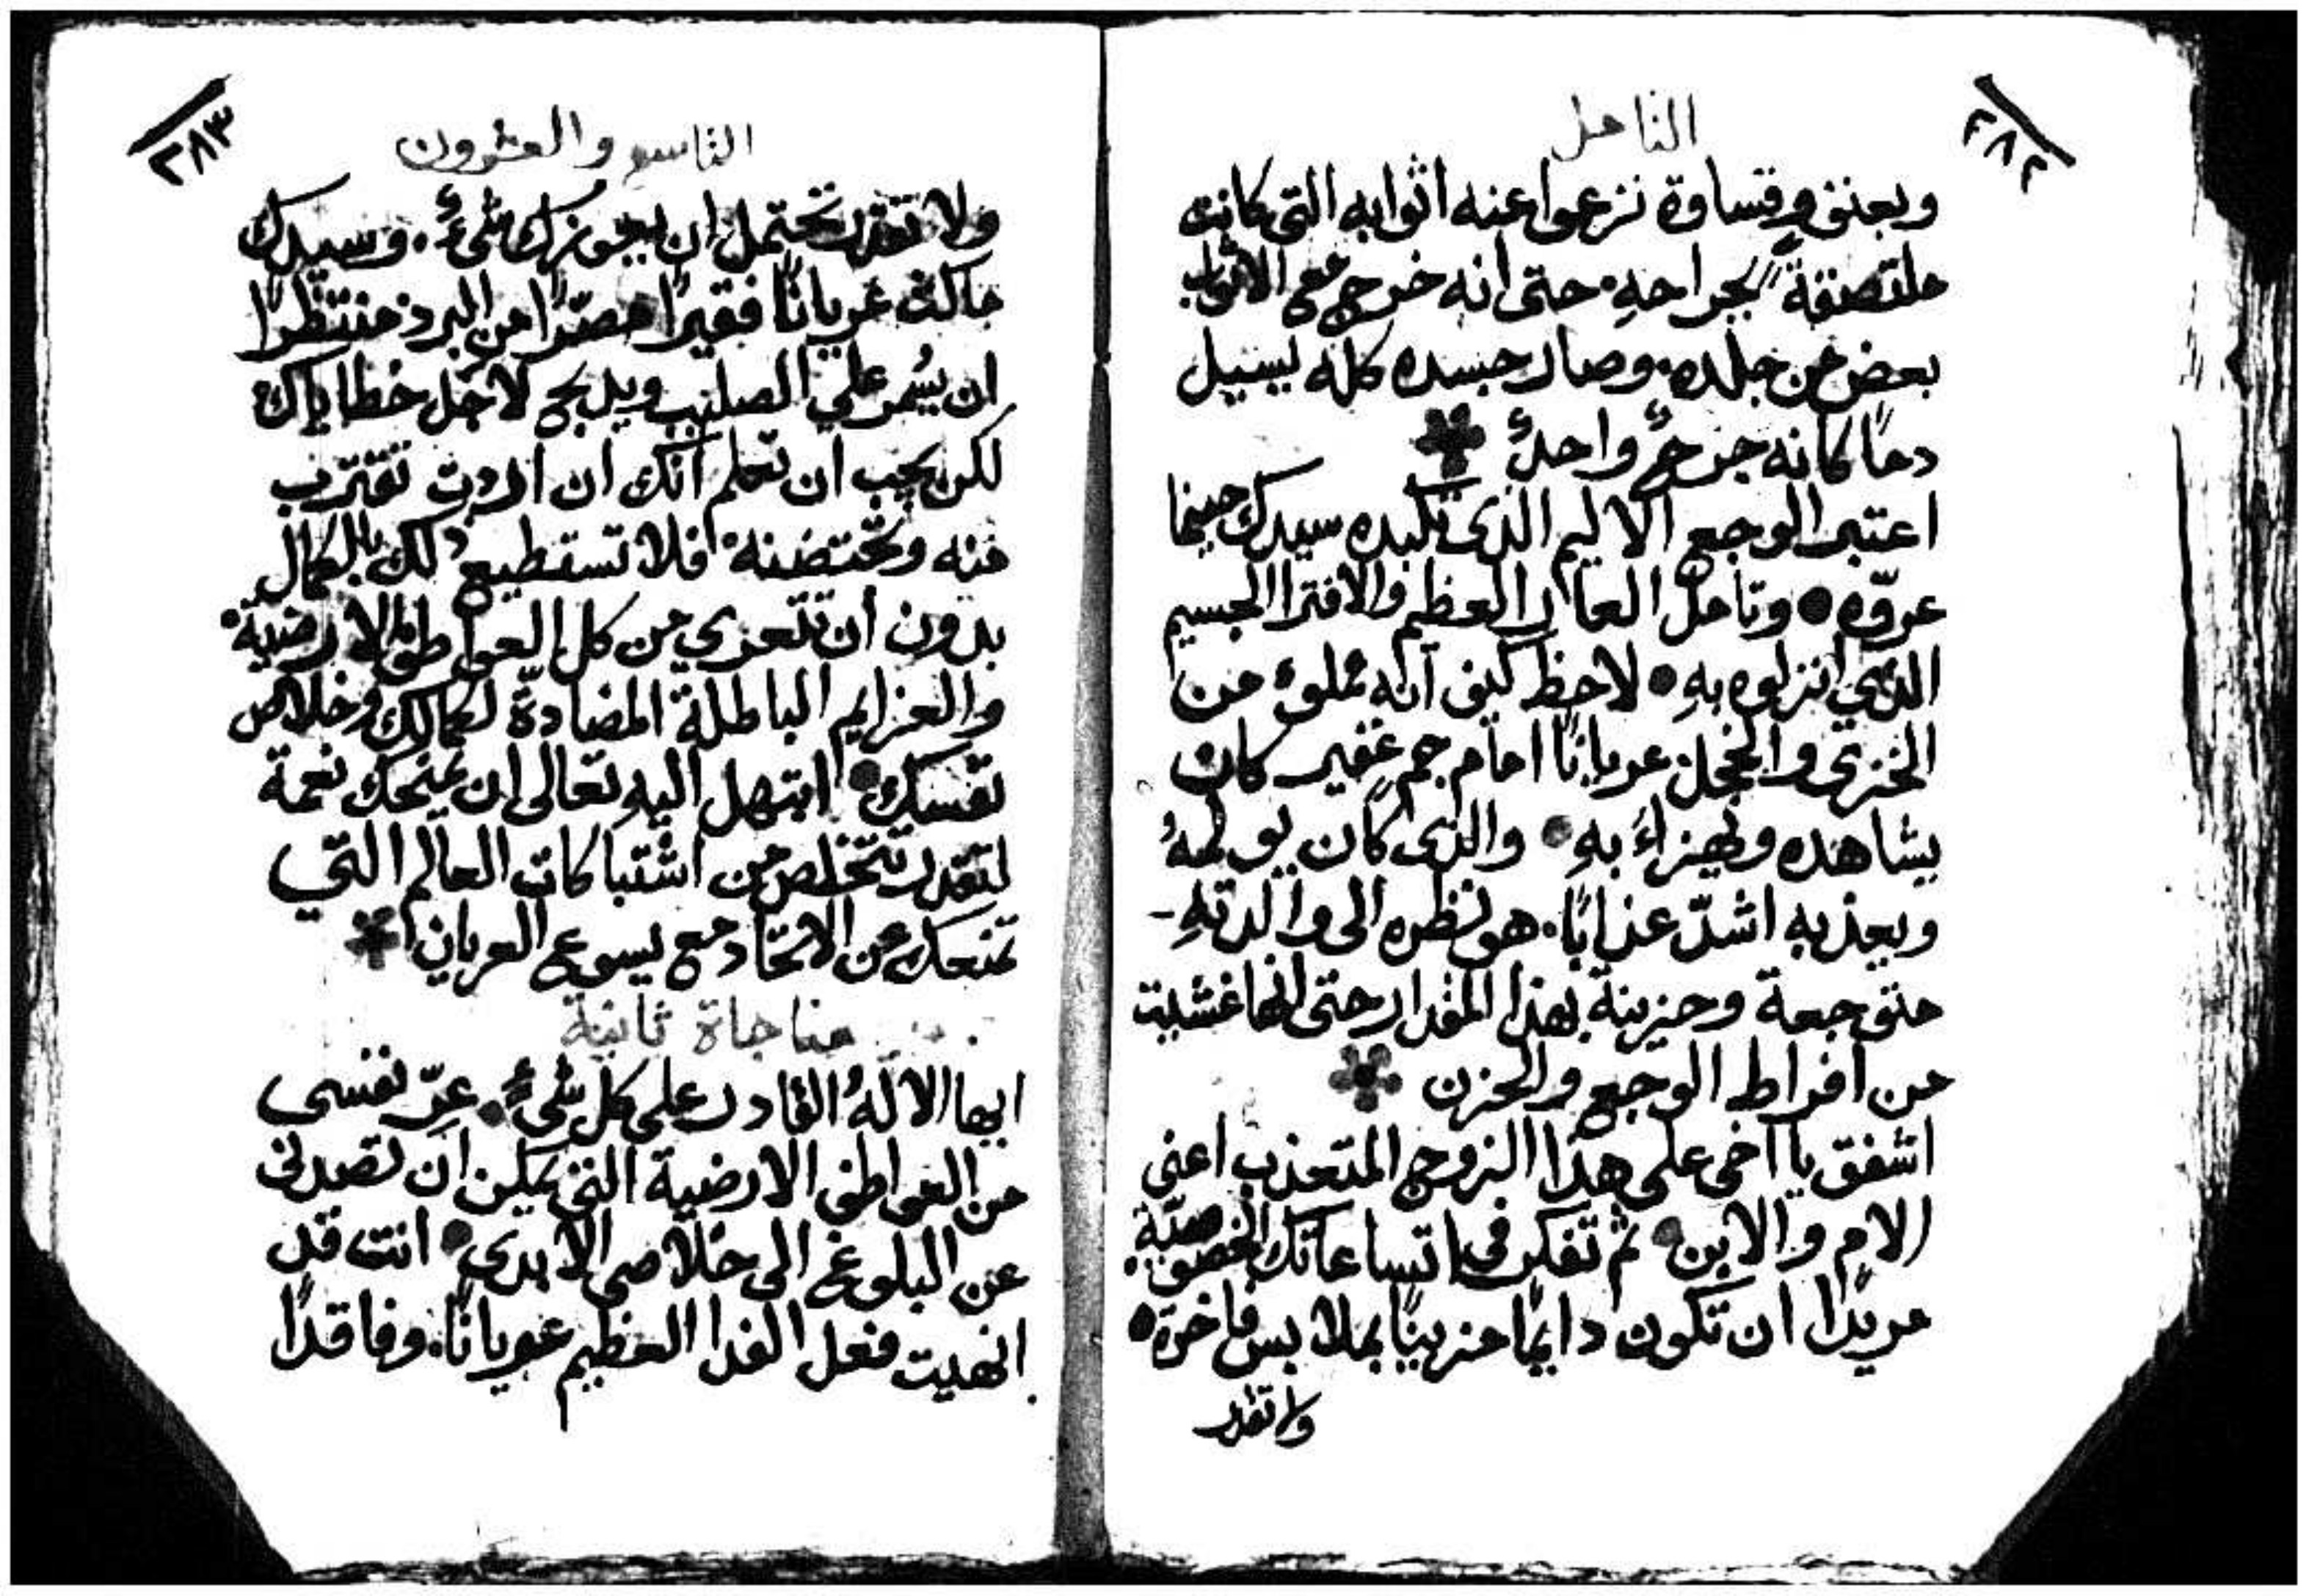 ٢٨٢
التامل
وبعنف وقساوة نزعوا عنه اثوابه التى كانت
ملتصقةً بجراحهِ. حتى انه خرج مع الاثواب
بعض من جلده. وصار جسده كله يسيل
دمًا كانه جرحٌ واحدٌ
اعتبر الوجع الاليم الذى تكبده سيدك حينما
عروّه وتامل العار العظيم والافترا الجسيم
الذي انزلوه بهِ لاحظ كيف انه مملوء من
الخزى والخجل عريانًا امام جم غفير كان
يشاهده ويهزاءَ بهِ والذى كان يولمهُ
ويعذبه اشدّ عذابًا. هو نظره الى والدتهِ
متوجعة وحزينة بهذا المقدار حتى انها غشيت
من افراط الوجع والحزن
اشفق يا اخى على هذا الزوج المتعذب اعنى
الام والابن ثم تفكر فى اتساعاتك الخصوصيّةِ
مريدًا ان تكون دايمًا مزينًا بملابس فاخرة
ولا تقدر
٢٨٣
التاسع والعشرون
ولا تقدر تحتمل ان يعوزك شىءٌ. وسيدك
ماكث عريانًا فقيرًا مصرًّا من البرد منتظرًا
ان يُسمر علي الصليب ويذبح لاجل خطاياك
لكن يجب ان تعلم انك ان اردت تقترب
منه وتحتضنه فلا تستطيع ذلك بالكمال
بدون ان تتعري من كل العواطف الارضية.
والعزايم الباطلة المضادّة لكمالك وخلاص
نفسك ابتهل اليهِ تعالى ان يمنحك نعمة
لتقدر تتخلص من اشتباكات العالم التي
تمنعك عن الاتحاد مع يسوع العريان
مناجاة ثانية
ايها الالهُ القادر على كل شىءٍ. عرّ نفسى
من العواطف الارضية التى يمكن ان تصدنى
عن البلوغ الى خلاصى الابدى انت قد
انهيت فعل الفدا العظيم عريانًا. وفاقدًا